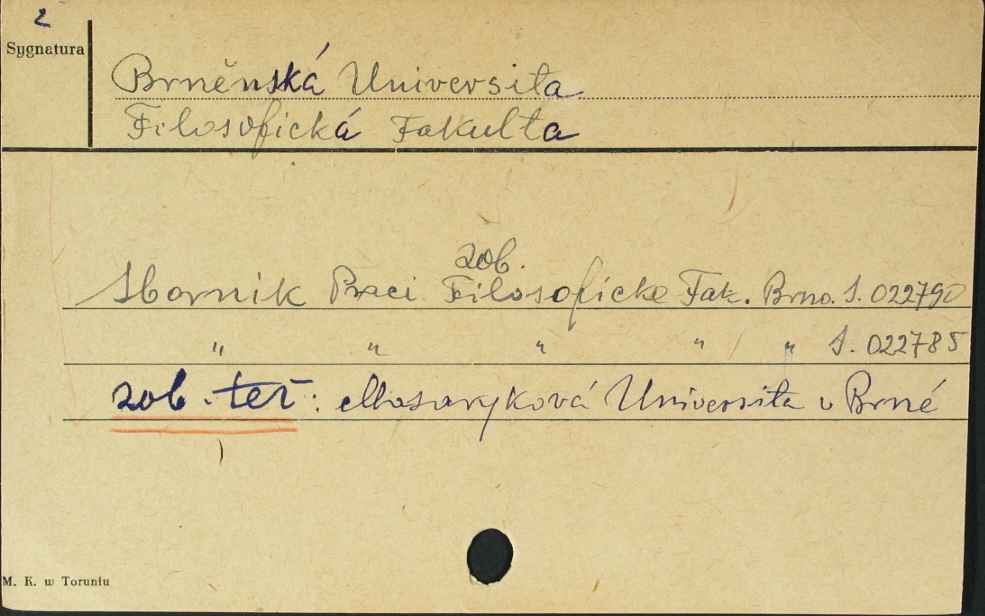 2
Sygnatura
Brněnská Universita
Filosofická Fakulta
zob.
Sbornik Praci Filosoficke Fak. Brno. S. 022790
" " " " " S. 022785
zob. też: Masaryková Universita v Brné
M. K. w Toruniu